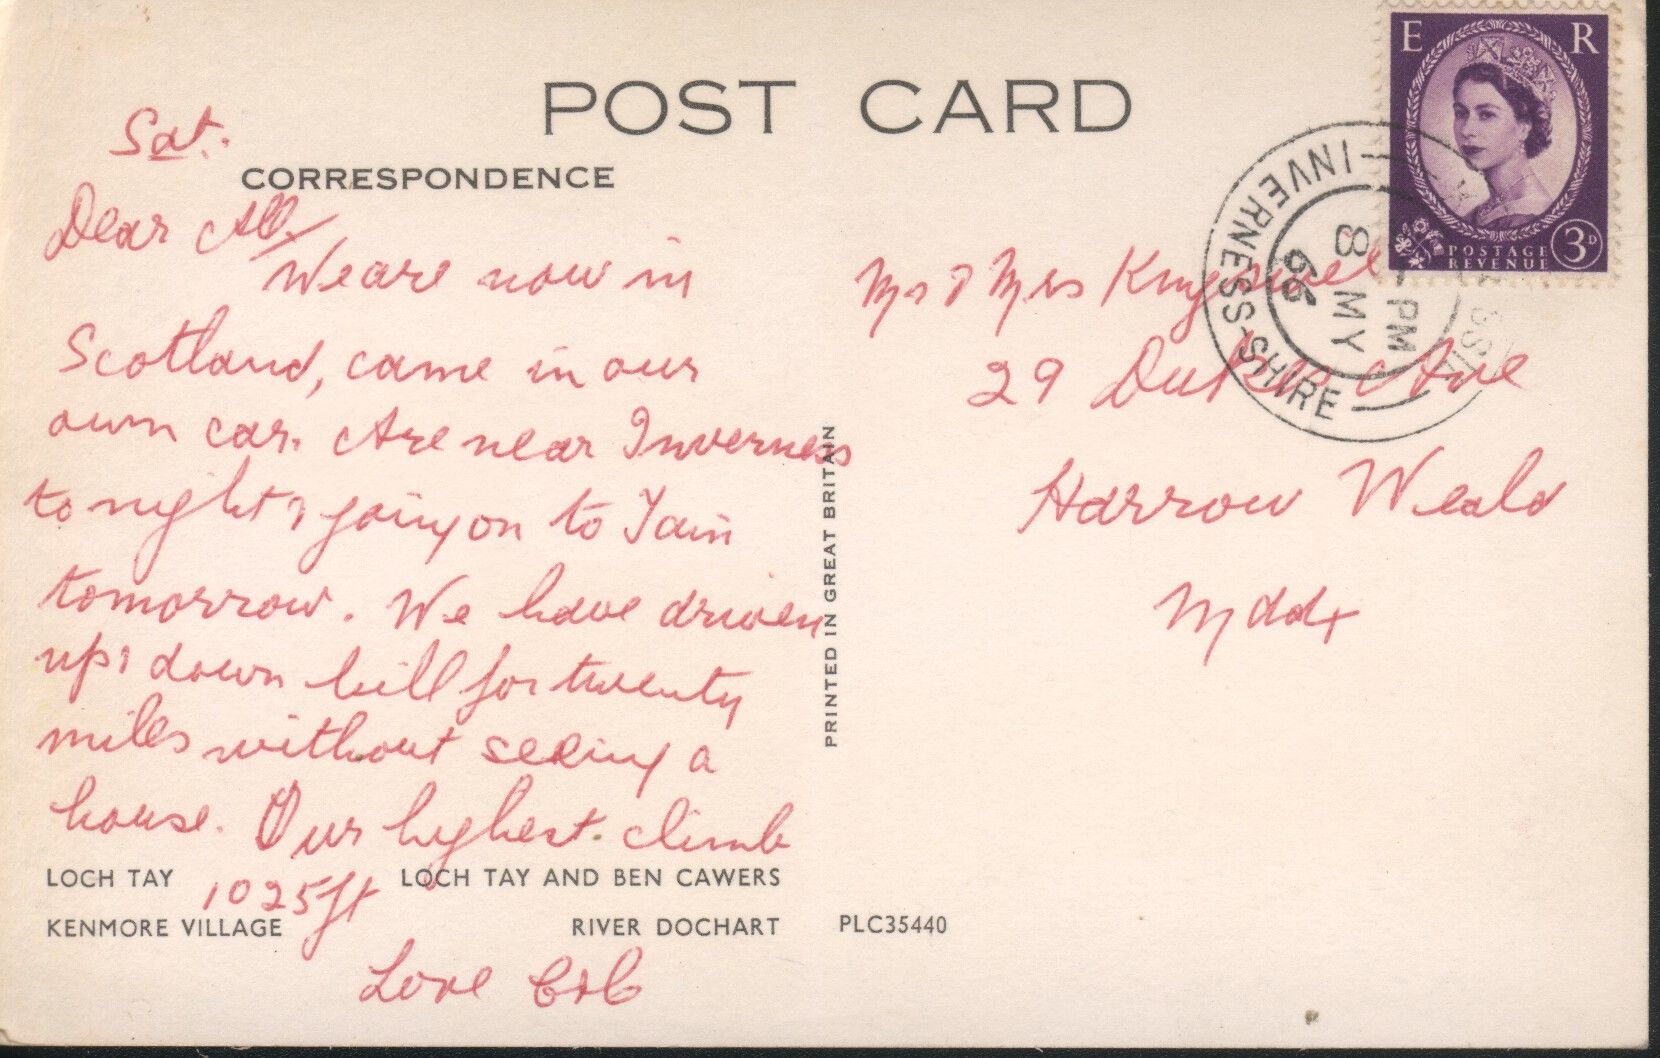 POST CARD
CORRESPONDENCE
Sat.
Dear All,
We are now in
Scotland, came in our
own car. Are near Inverness
to night & going on to Tain
tomorrow. We have driven
up & down hill for twenty
miles without seeing a
house. Our highest climb
1025ft
Love
LOCH TAY
LOCH TAY AND BEN CAWERS
KENMORE VILLAGE
RIVER DOCHART
PLC35440
PRINTED IN GREAT BRITAIN
E R
POSTAGE
REVENUE
3D
INVERNESS-SHIRE
PM
8 MY
66
Mr & Mrs
29 Ave
Harrow Weald
Mddx